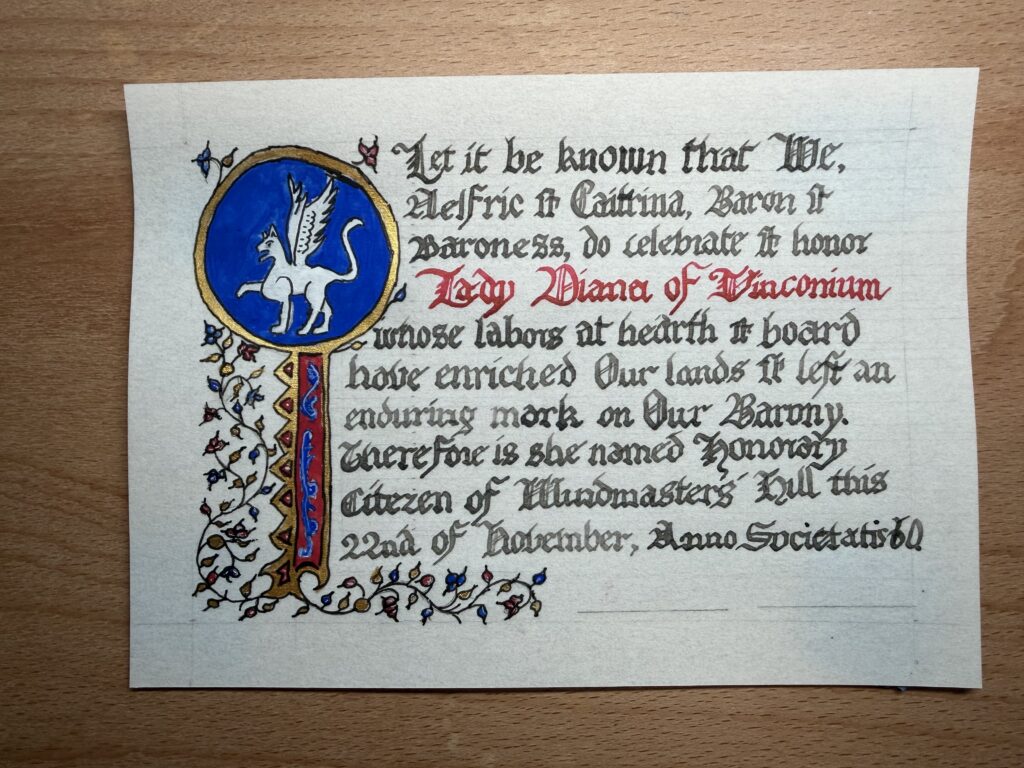 Let it be known that We,
Aelfric & Caittrina, Baron &
Baroness, do celebrate & honor
Lady Diana of Vinconium
whose labors at hearth & board
have enriched Our lands & left an
enduring mark on Our Barony.
Therefore is she named Honorary
Citezen of Windmasters' Hill this
22nd of November, Anno Societatis 60